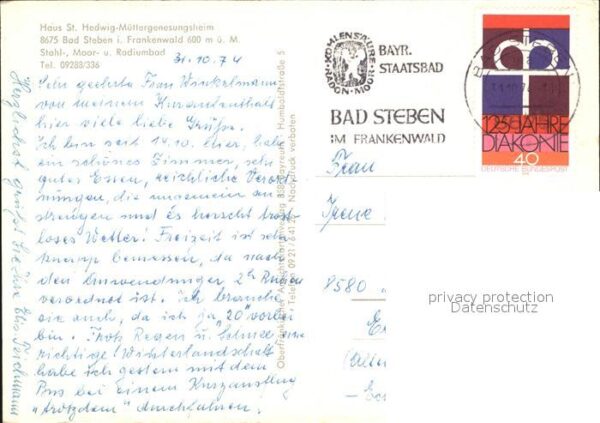 Haus St. Hedwig-Müttergenesungsheim
8675 Bad Steben i. Frankenwald 600 m ü. M.
Stahl-, Moor- u. Radiumbad
Tel. 09288/336
31.10.74
Sehr geehrte Frau Winkelmann,
von meinem Kuraufenthalt
hier viele liebe Grüße.
Ich bin seit 14.10. hier, habe
ein schönes Zimmer, sehr
gutes Essen, reichliche Verord-
nungen, die ungemein an-
strengen und Es herrscht trost-
loses Wetter! Freizeit ist sehr
knapp bemessen, da nach
den Anwendungen 2 Ruhen
verordnet ist. Ich brauche
sie auch, da ich ja "20" vorbei
bin. Trotz Regen u. Schnee eine
richtige Winterlandschaft
habe ich gestern mit dem
Bus bei einem Kurzausflug
"trotzdem" durchfahren!
Herzlichst grüßt Sie Ihre
Humboldtstraße 5
Nachdruck verboten
KOHLENSÄURE
RADON-MOOR
BAYR.
STAATSBAD
BAD STEBEN
IM FRANKENWALD
125 JAHRE
DIAKONIE
40
DEUTSCHE BUNDESPOST
Frau
Irene
8580
privacy protection
Datenschutz